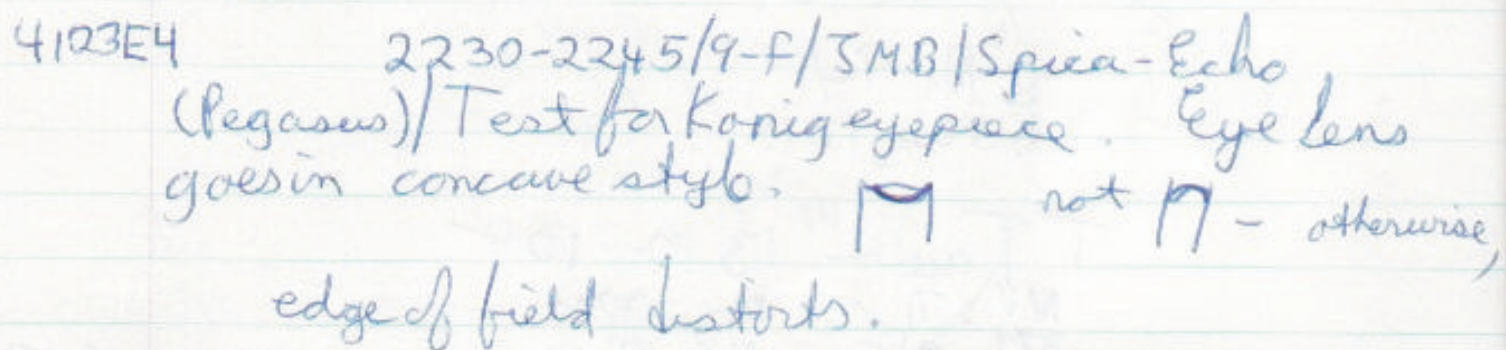 4123E4 2230-2245/9-F/JMB/Spica-Echo
(Pegasus)/Test for Konig eyepiece. Eye lens
goes in concave style. not - otherwise,
edge of field distorts.